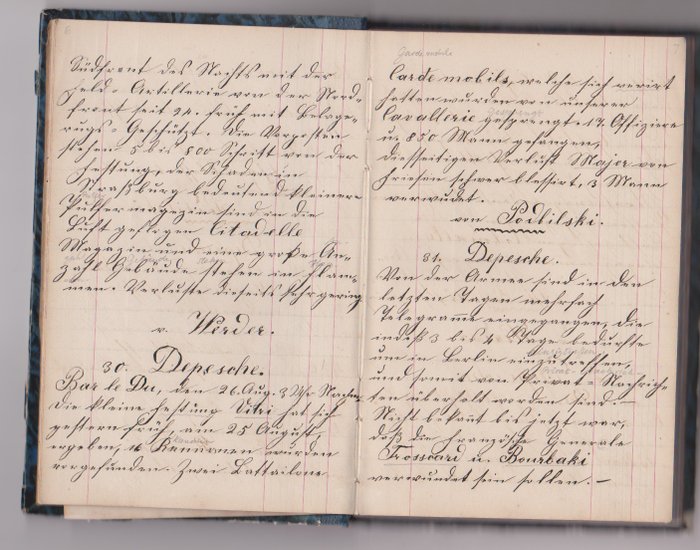 Südfront des Nachts mit der
Feld-Artillerie von der Nord-
front seit 24. früh mit Belage-
rugs-Geschützt. Die Vorposten
stehen 5 bis 800 Schritt von der
Festung, der Schaden in
Straßburg bedeutend kleiner
Pulhermagezin sind in die
Luft geflogen Citadelle
Magazin und eine große An-
zahl Gebäude stehen in Flam-
men. Verluste dieseits sehr gering
v. Werder.
30. Depesche.
Bar le Du, den 26. Aug. 3 Uhr Nachm.
Die kleine Festung Vitri hat sich
gestern früh, am 25 August
ergeben, 16 Kannonen wurden
vorgefunden. Zwei Battailone
Garde mobile
Carde mobils, welche sich verirt
hatten wurden von unserer
Cavallerie gesprengt. 17. Offiziere
u. 850 Mann gefangen,
diesseitigen Verlust Major von
Friesen schwer blessirt, 3 Mann
verwudet.
von Podbilski.
31. Depesche.
Von der Armee sind in den
letzten Tagen mehrfach
Telegrame eingegangen, die
indeß 3 bis 4 Tage bedurfte
um in Berlin einzutreffen,
und somit von Privat-Nachriche
ten überholt worden sind. —
Nicht bekant bis jetzt war,
daß die Französche Generale
Frossard u. Bourbaki
verwundet sein sollen. —